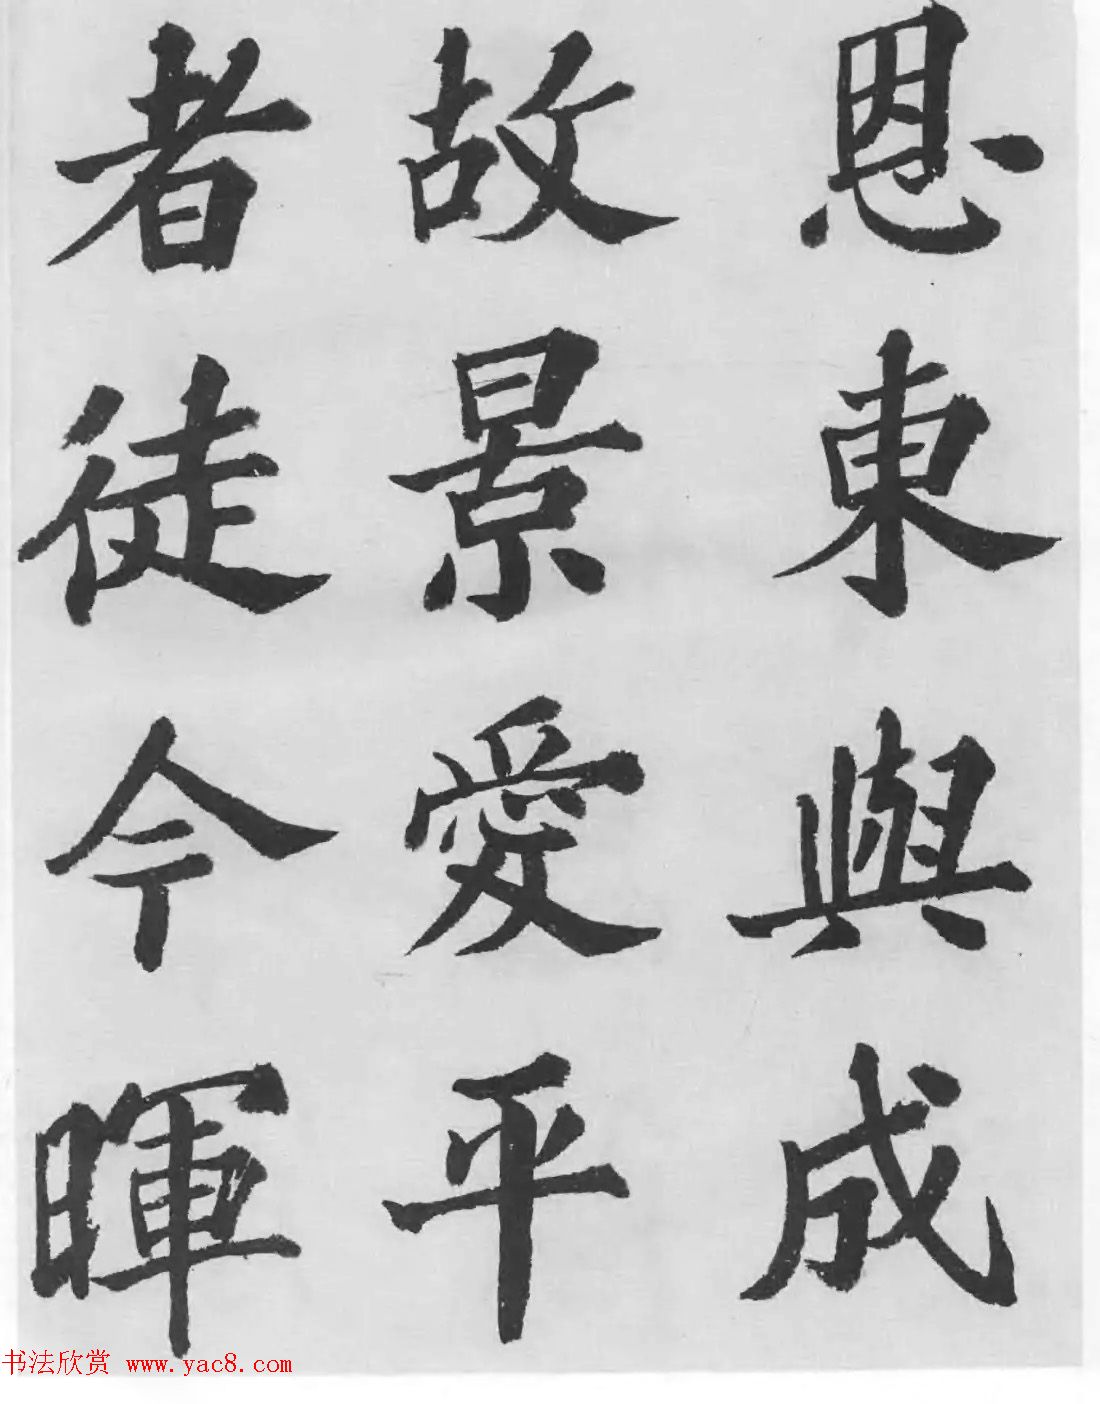 恩東與成
故景愛平
者徒今暉
书法欣赏 www.yac8.com